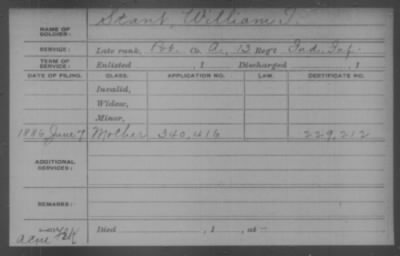 NAME OF SOLDIER: Stant, William T.
SERVICE: Late rank, Pvt. Co. A, 13 Reg't Ind. Inf.
TERM OF SERVICE: Enlisted , 1 Discharged , 1
DATE OF FILING. CLASS. APPLICATION NO. LAW. CERTIFICATE NO.
Invalid,
Widow,
Minor,
1886 June 7 Mother 340,416 229,212
ADDITIONAL SERVICES:
REMARKS:
Died , 1 , at